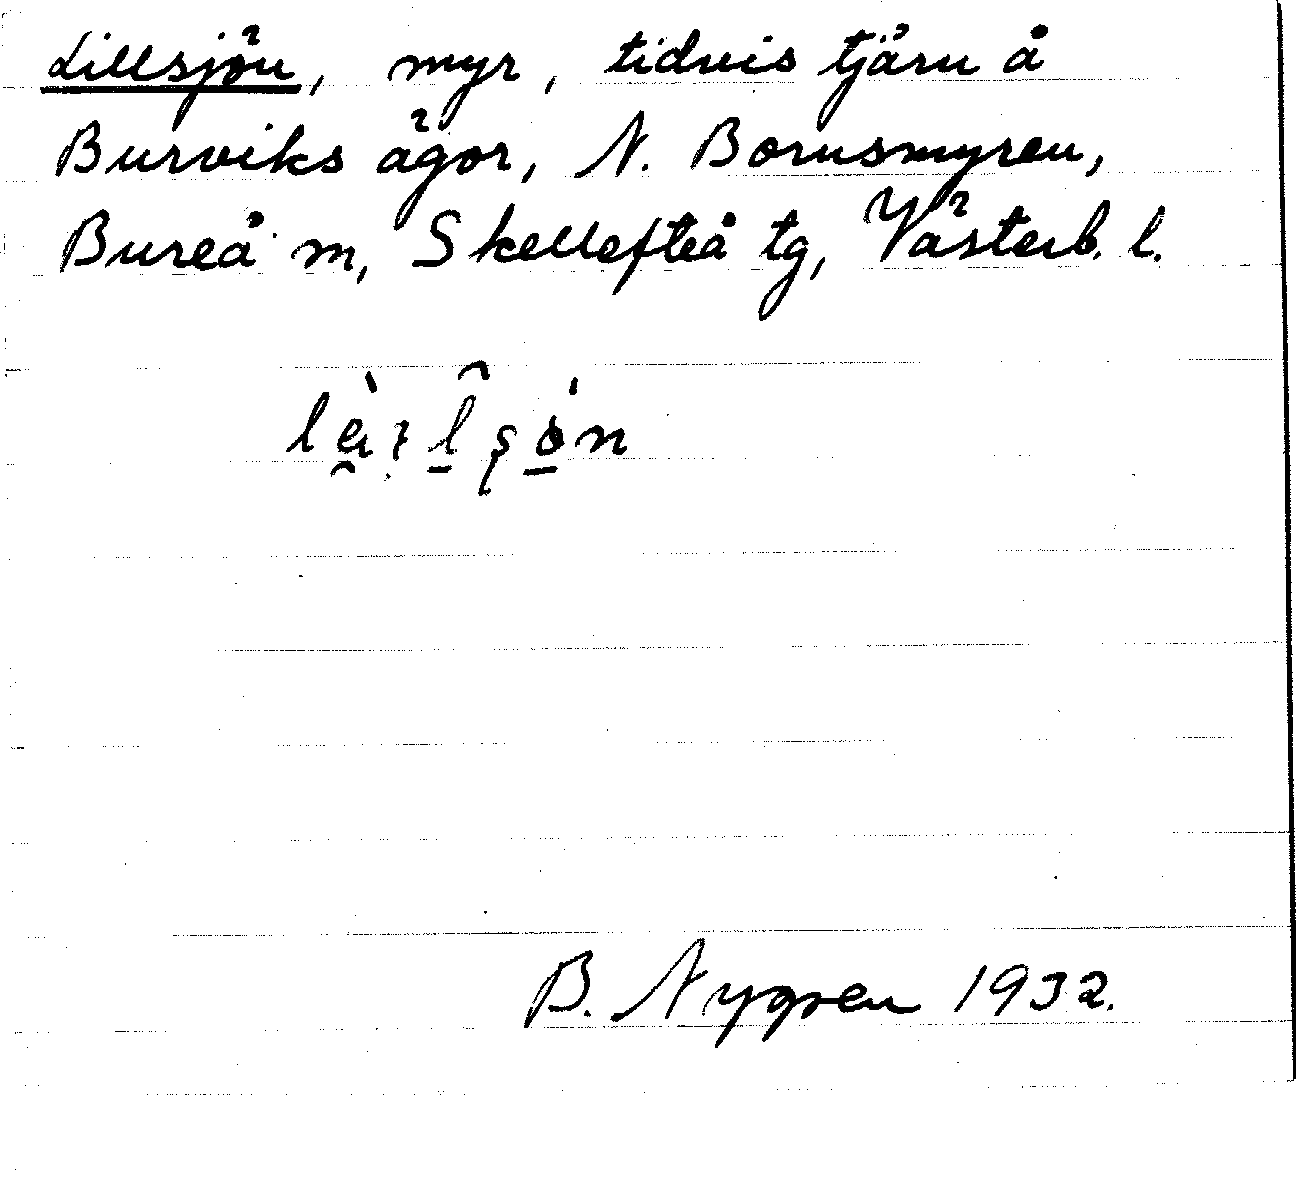 Lillsjön, myr, tidvis tjärn å
Burviks ägor, N. Bornsmyren,
Bureå m, Skellefteå tg, Västerb. l.
B. Nygren 1932.